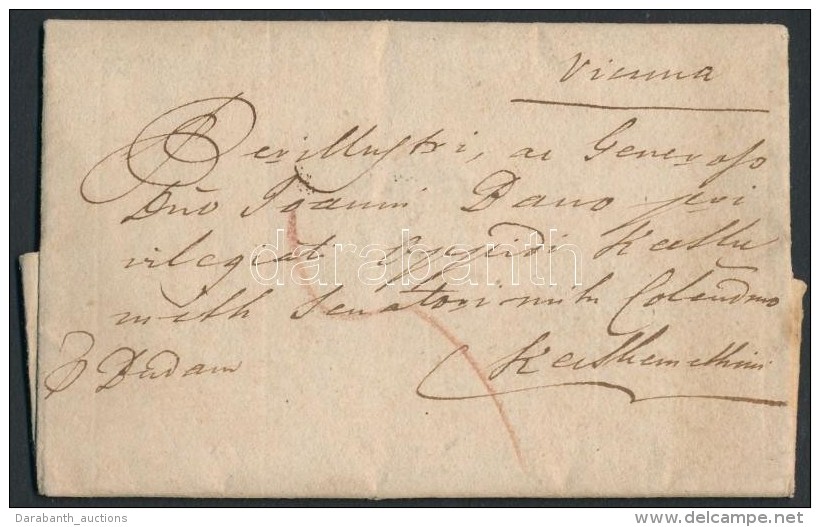 Vienna
Perillustri, ac Generoso
Dño Joanni Dano pri
vilegiat Oppidi Kecske
meth Senatori mihi Colendmo
Kecskemethini
p Budam
darabanth
Darabanth_auctions
www.delcampe.net